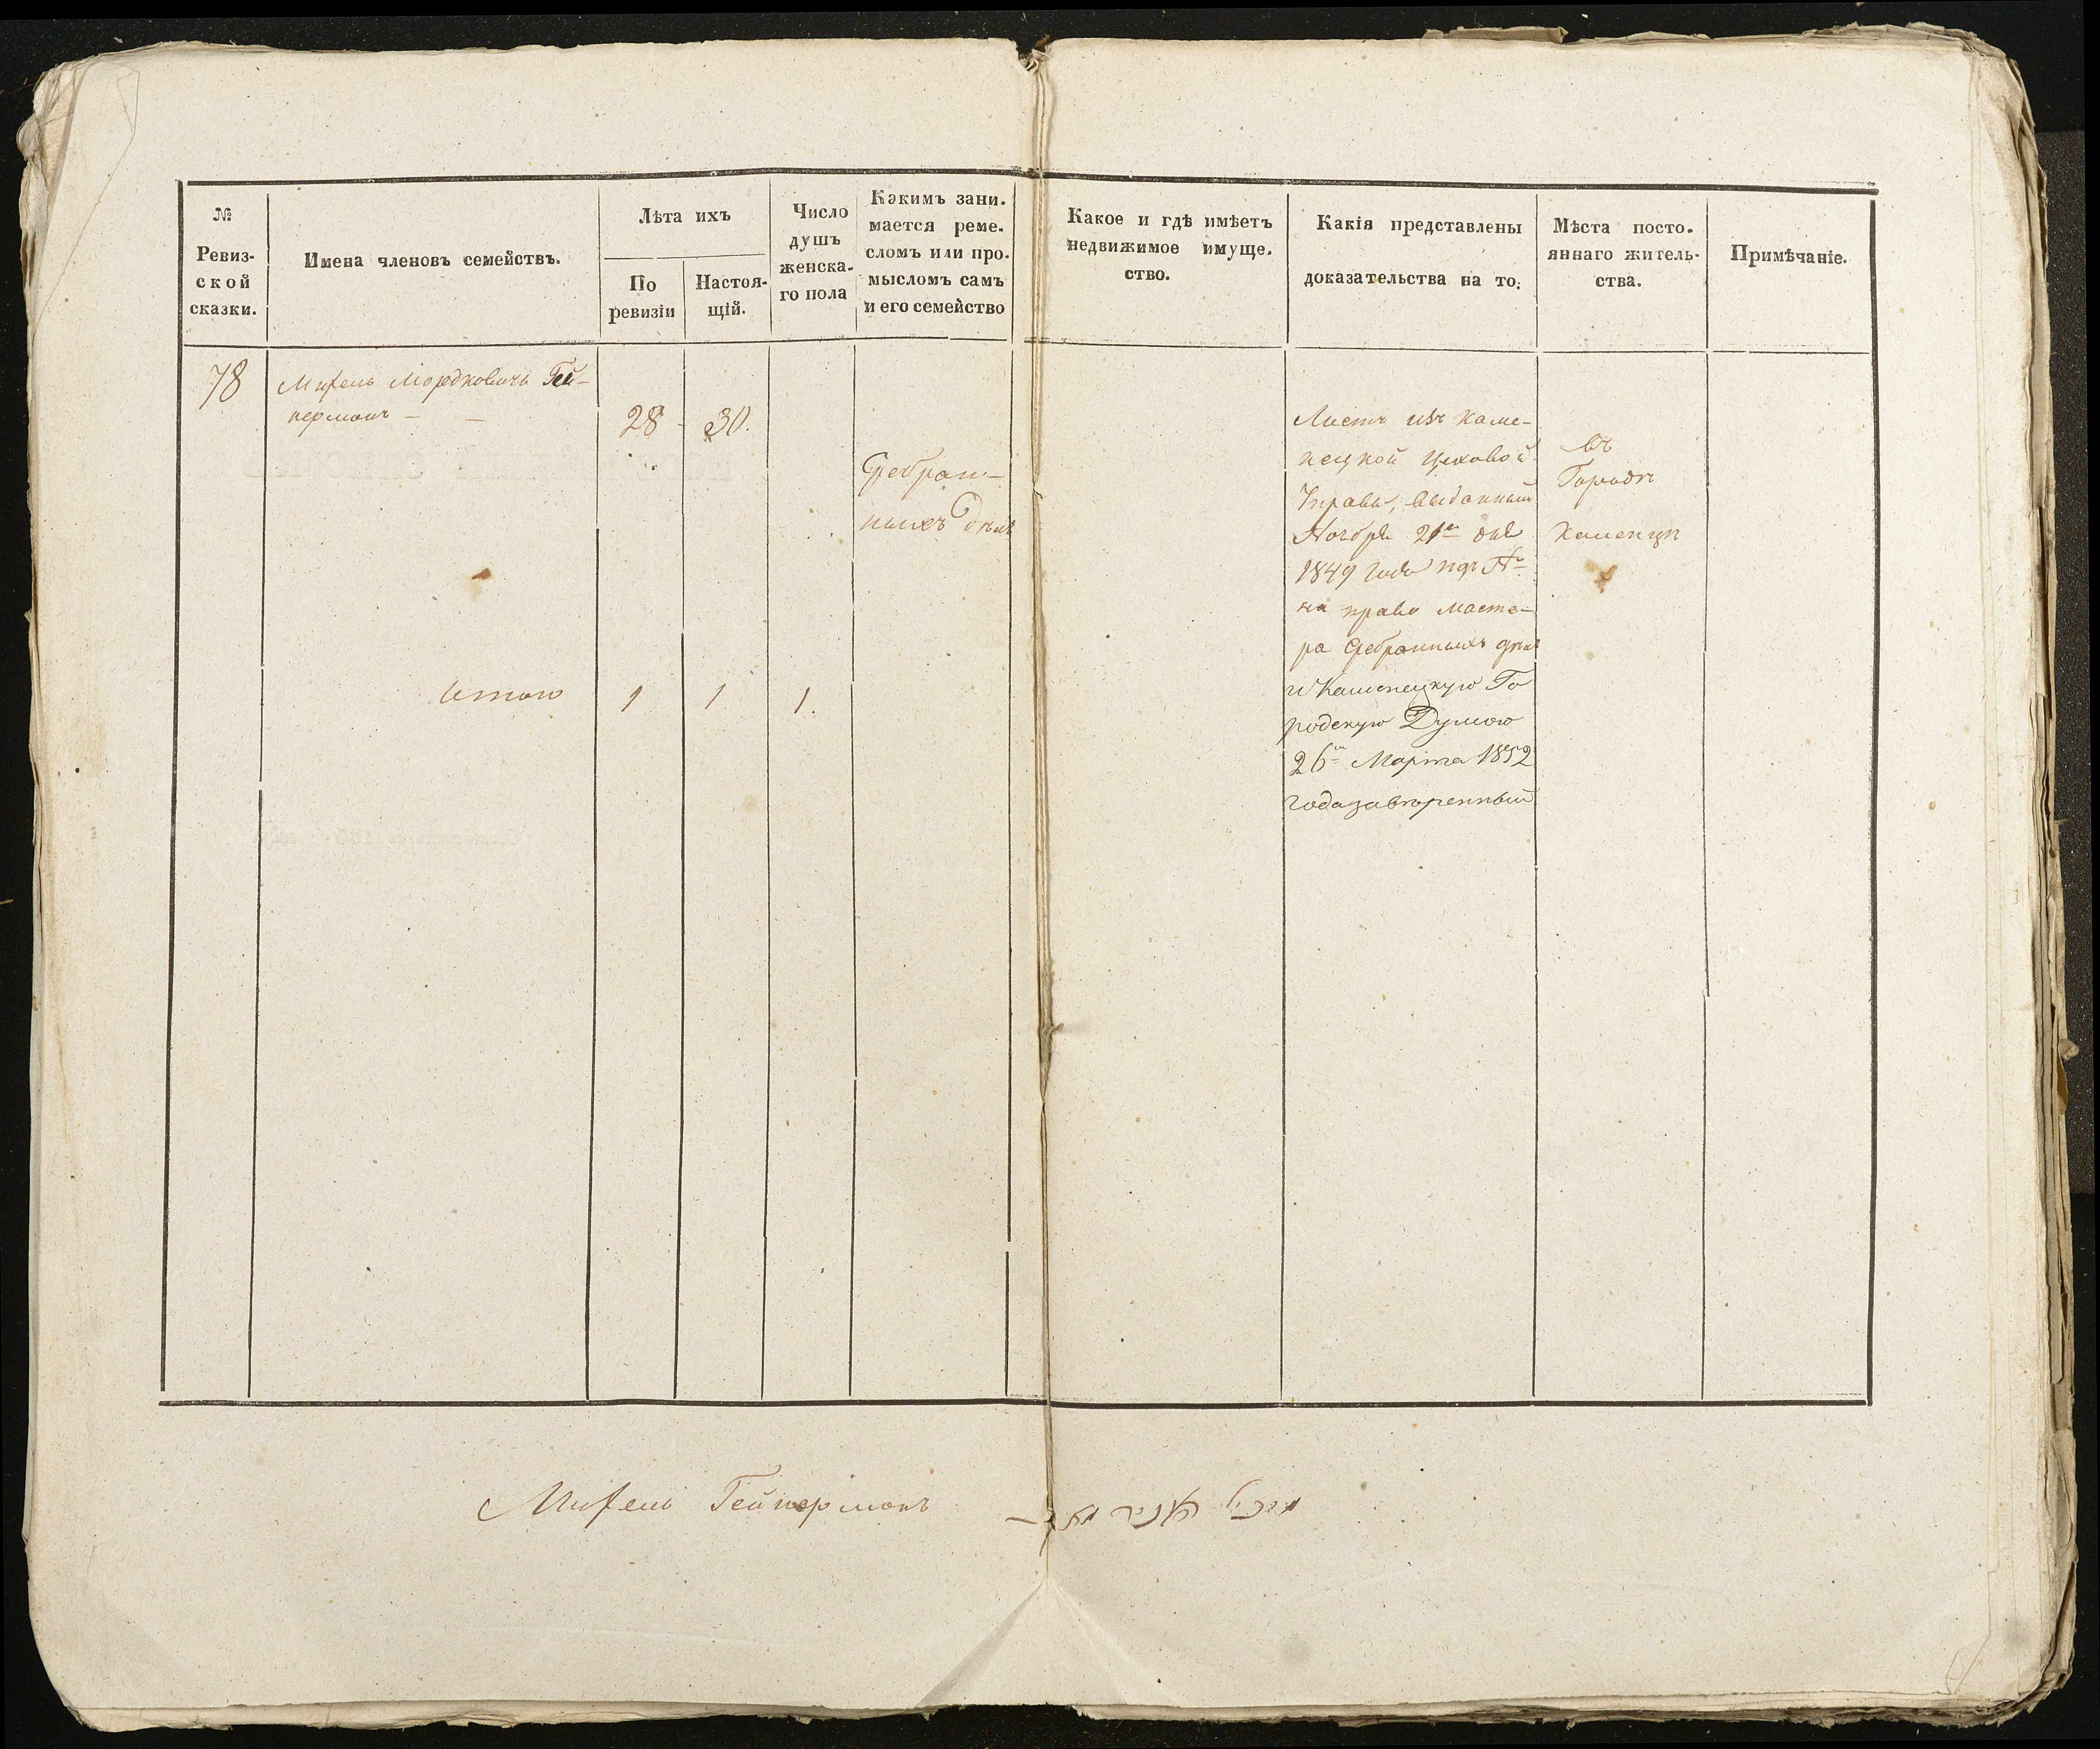 №
Ревиз-
ской
сказки.
Имена членовъ семействъ.
Лѣта ихъ
По
ревизіи
Настоя-
щій.
Число
душъ
женска-
го пола
Какимъ зани-
мается реме-
сломъ или про-
мысломъ самъ
и его семейство
Какое и гдѣ имѣетъ
недвижимое имуще-
ство.
Какія представлены
доказательства на то.
Мѣста посто-
яннаго житель-
ства.
Примѣчаніе.
78
Михель Мордковичъ Гей-
нерманъ
28 30.
Сребран-
ныхъ дѣлъ
Листъ изъ Каме-
нецкой Цеховой
Управы, выданный
Ноября 21го дня
1849 года подъ №
на право масте-
ра Сребранныхъ дѣлъ
и Каменецкую Го
родскую Думою
26го Марта 1852
года
въ
Городѣ
Каменцѣ
Итого 1 1 1.
Михель Гейнерманъ